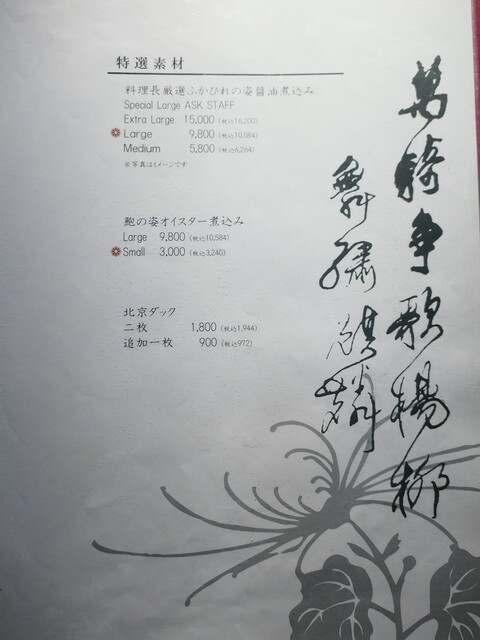 特選素材
料理長厳選ふかひれの姿醤油煮込み
Special Large ASK STAFF
Extra Large 15,000 (税込16,200)
Large 9,800 (税込10,584)
Medium 5,800 (税込6,264)
※写真はイメージです
鮑の姿オイスター煮込み
Large 9,800 (税込10,584)
Small 3,000 (税込3,240)
北京ダック
二枚 1,800 (税込1,944)
追加一枚 900 (税込972)
萬騎争歌楊柳